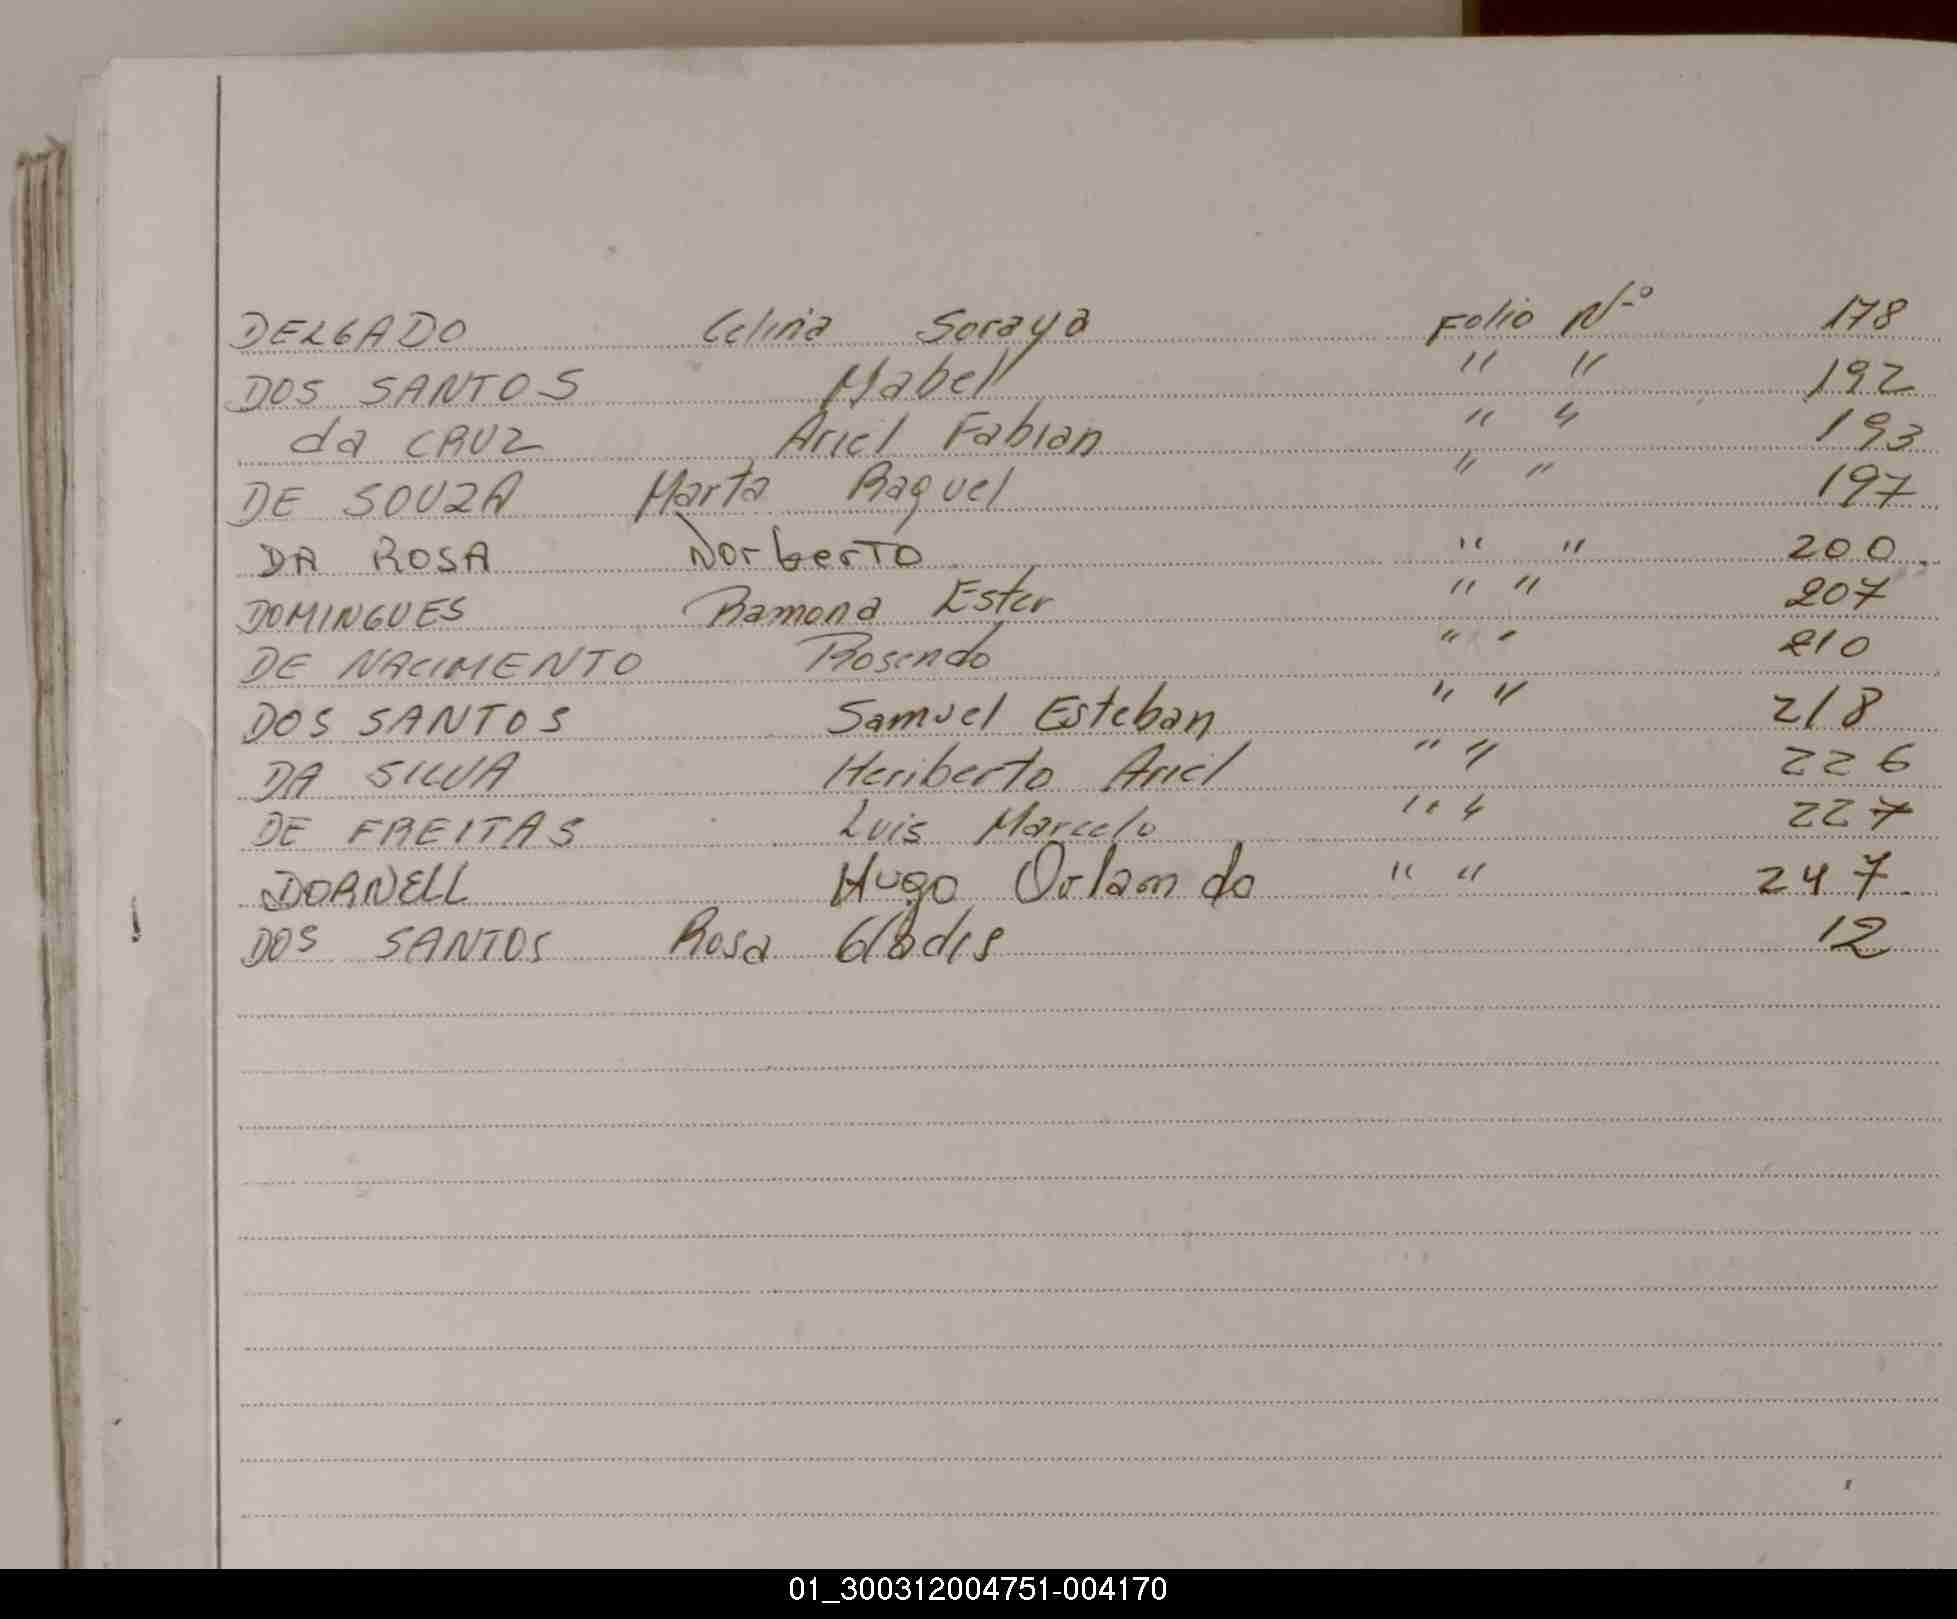 DELGADO Celina Soraya Folio Nº 178
DOS SANTOS Mabel " " 192
da CRUZ Ariel Fabian " " 193
DE SOUZA Marta Raquel " " 197
DA ROSA Norberto " " 200
DOMINGUES Ramona Ester " " 207
DE NACIMENTO Rosendo " " 210
DOS SANTOS Samuel Esteban " " 218
DA SILVA Heriberto Ariel " " 226
DE FREITAS Luis Marcelo " " 227
DORNELL Hugo Orlando " " 247
DOS SANTOS Rosa Gladis 12
01_300312004751-004170